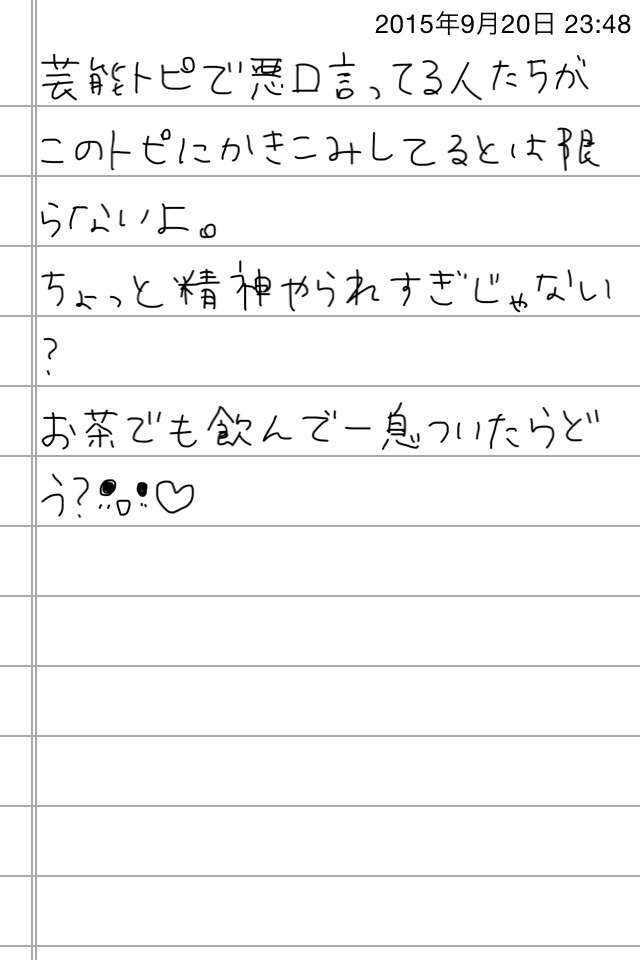 2015年9月20日 23:48
芸能トピで悪口言ってる人たちが
このトピにかきこみしてるとは限
らないよ。
ちょっと精神やられすぎじゃない
?
お茶でも飲んで一息ついたらど
う?